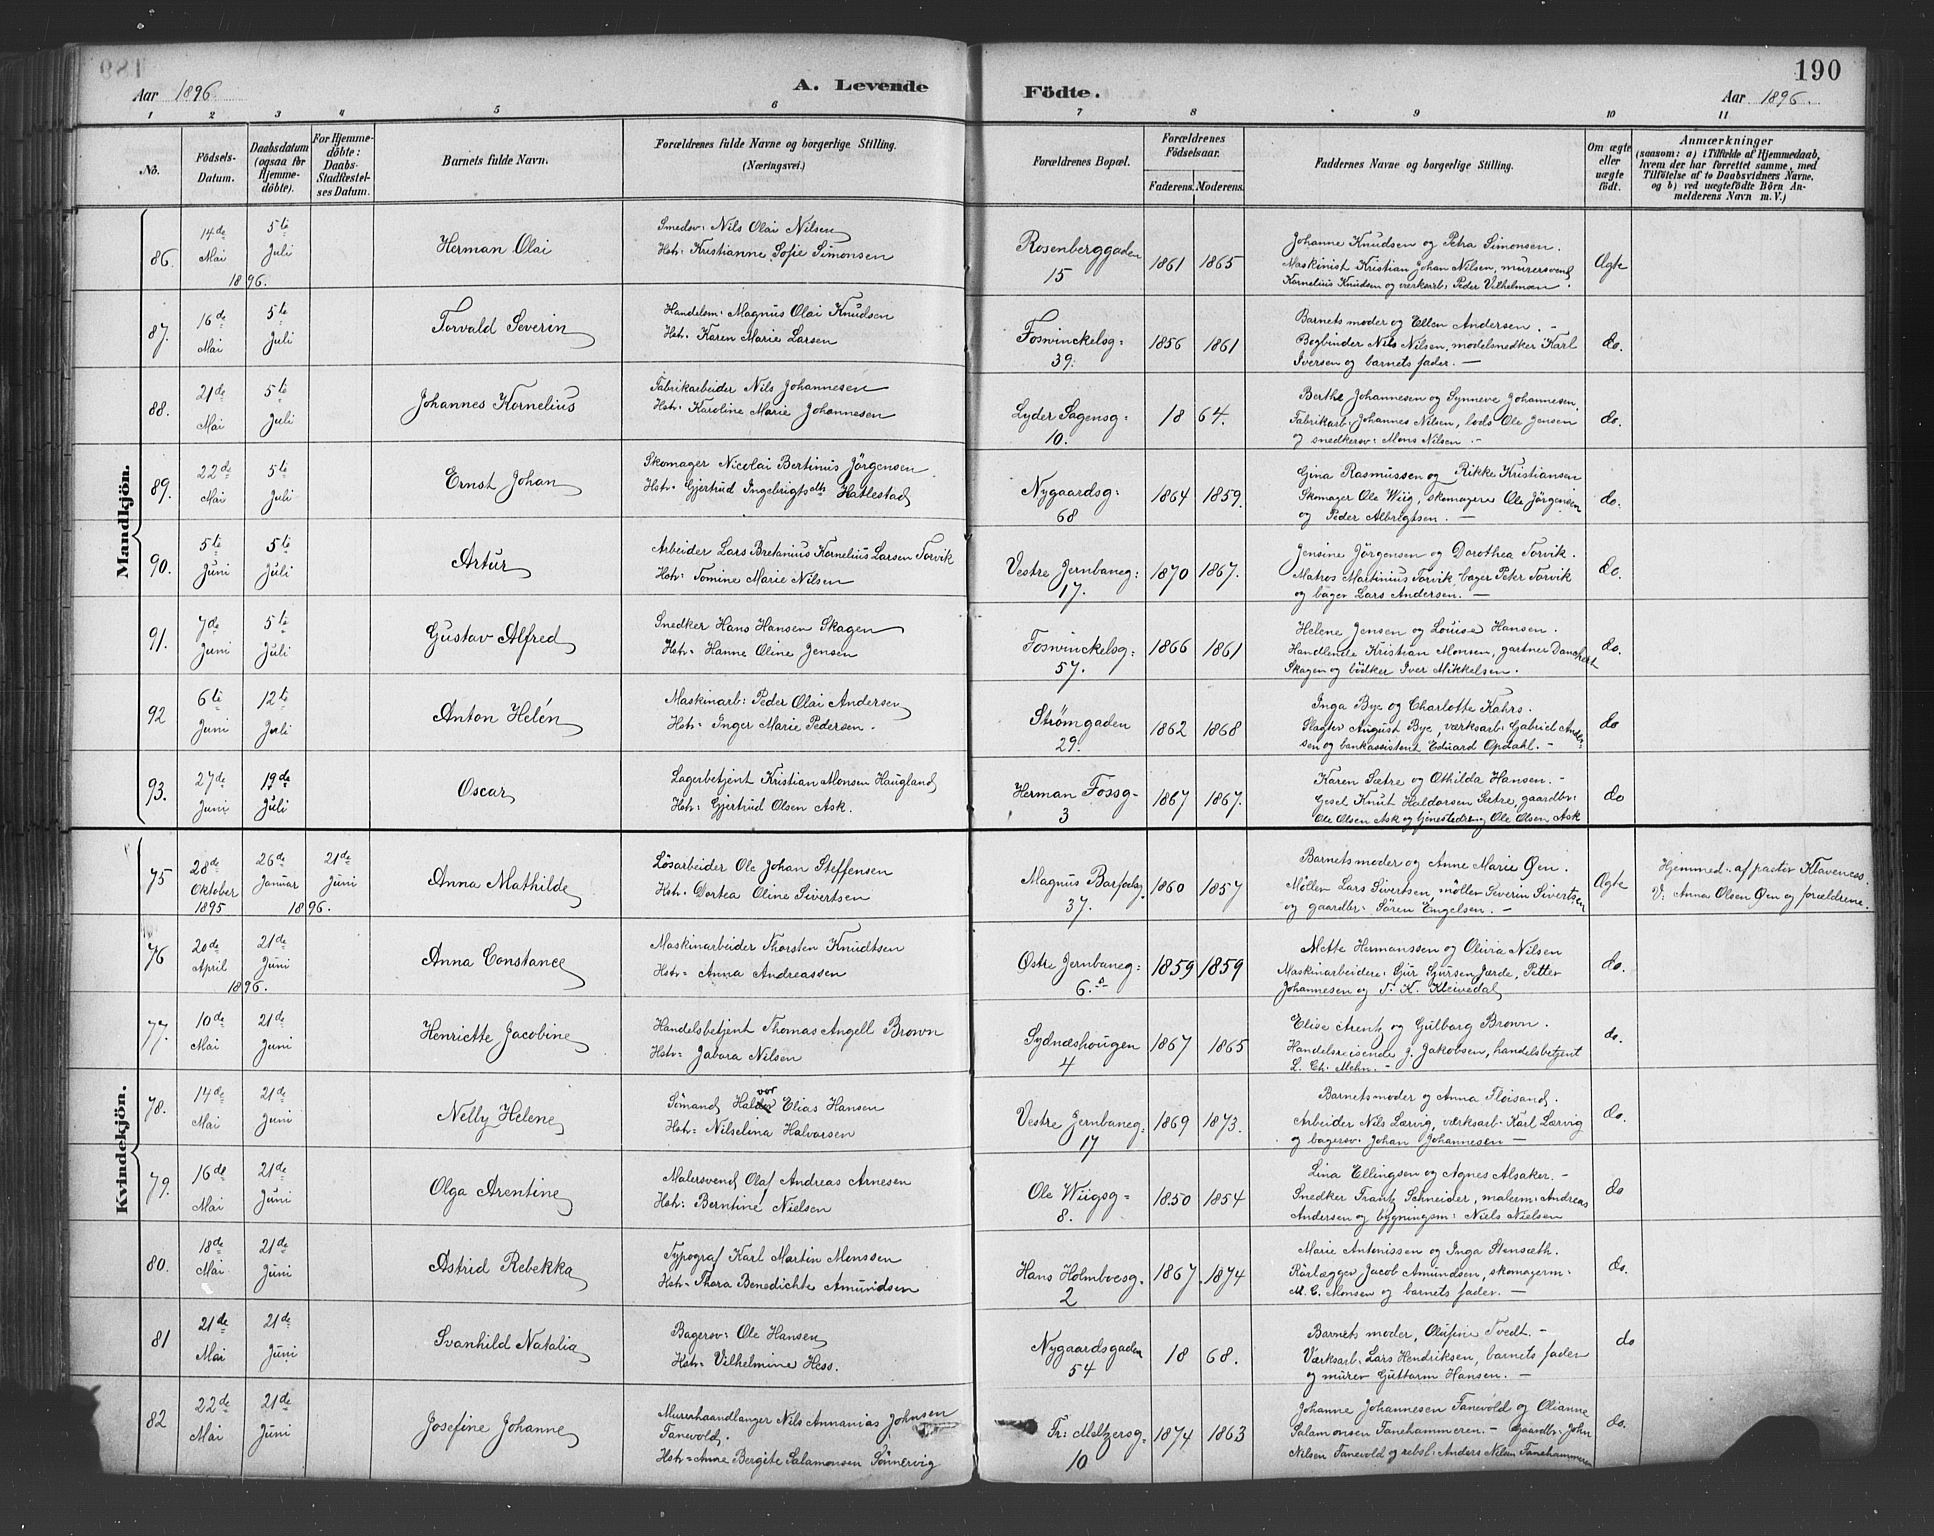 Aar 1896.
A. Levende
Födte.
190
Aar 1896.
1 2 3 4 5 6 7 8 9 10 11
No.
Födsels-Datum.
Daabsdatum (ogsaa for Hjemme-döbte).
For Hjemme-döbte: Daabs-Stadfæstelses Datum.
Barnets fulde Navn.
Forældrenes fulde Navne og borgerlige Stilling.
(Næringsvei.)
Forældrenes Bopæl.
Forældrenes Födselsaar.
Faderens. Moderens.
Faddernes Navne og borgerlige Stilling.
Om ægte eller uægte födt.
Anmærkninger
(saasom: a) i Tilfælde af Hjemmedaab, hvem der har forrettet samme, med Tilföielse af to Daabsvidners Navne, og b) ved uægtefödte Börn Anmelderens Navn m. V.)
Mandkjön.
86. 14de Mai 1896. 5te Juli
Herman Olai
Smedsv: Nils Olai Nilsen
Hstr: Kristianne Sofie Simonsen
Rosenberggaden 15
1861 1865
Johanne Knudsen og Petra Simonsen.
Maskinist Kristian Johan Nilsen, murersvend
Kornelius Knudsen og værksarb: Peder Vilhelmsen.
Ægte
87. 16de Mai 5te Juli
Torvald Severin
Handelsm: Magnus Olai Knudsen
Hstr: Karen Marie Larsen
Fosvinckelsg: 39.
1856 1861
Barnets moder og Ellen Andersen. –
Bogbinder Nils Nilsen, modelsnedker Karl
Iversen og barnets fader. –
do.
88. 21de Mai 5te Juli
Johannes Kornelius
Fabrikarbeider Nils Johannesen
Hstr: Karoline Marie Johannesen
Lyder Sagensg: 10.
1864.
Berthe Johannesen og Synneve Johannesen,
Fabrikarb: Johannes Nilsen, lods Ole Jensen
og snedkersv: Mons Nilsen. –
do.
89. 22de Mai 5te Juli
Ernst Johan
Skomager Nicolai Bertinus Jörgensen
Hstr: Gjertrud Ingebrigtsdtr Hatlestad
Nygaardsg: 68
1864 1859.
Gina Rasmussen og Rikke Kristiansen
Skomager Ole Wiig, skomagere Ole Jörgensen
og Peder Albrigtsen. –
do.
90. 5te Juni 5te Juli
Artur
Arbeider Lars Bretanius Kornelius Larsen Torvik
Hstr: Tomine Marie Nilsen
Vestre Jernbaneg: 17.
1870 1867.
Jensine Jörgensen og Dorothea Torvik.
Matros Martinius Torvik, bager Peter Torvik
og bager Lars Andersen. –
do.
91. 7de Juni 5te Juli
Gustav Alfred
Snedker Hans Hansen Skagen
Hstr: Hanne Oline Jensen
Fosvinckelsg: 57.
1866 1861
Helene Jensen og Louise Hansen.
Handlende Kristian Monsen, gartner Danckert
Skagen og bödker Iver Mikkelsen.
do.
92 6te Juni 12te Juli
Anton Helén
Maskinarb: Peder Olai Andersen
Hstr: Inger Marie Pedersen.
Strömgaden 29.
1862 1868
Inga Bye og Charlotte Kahrs.
Slagter August Bye, værksarb: Gabriel Ander-
sen og bankassistent Eduard Opdahl. –
do
93. 27de Juni 19de Juli
Oscar
Lagerbetjent Kristian Monsen Haugland
Hstr: Gjertrud Olsen Ask.
Herman Fossg: 3
1867 1867.
Karen Sætre og Othilda Hansen. –
Gesel Knut Haldorsen Sætre, gaardbr:
Ole Olsen Ask og tjenestedreng Ole Olsen Ask
do
Kvindekjön.
75 28de Oktober 1895 26de Januar 21de Juni 1896.
Anna Mathilde
Lösarbeider Ole Johan Steffensen
Hstr: Dortea Oline Sivertsen
Magnus Barfodsg. 37.
1860 1857
Barnets moder og Anne Marie Øen.
Möller Lars Sivertsen, möller Severin Sivertsen
og gaardbr: Sören Engelsen. –
Ægte
Hjemmed: af pastor Klavenæs.
V: Anna Olsen Øen og forældrene.
76 20de April 1896. 21de Juni
Anna Constance
Maskinarbeider Thorsten Knudtsen
Hstr: Anna Andreassen
Østre Jernbaneg: 6.a
1859 1859
Mette Hermanssen og Olivia Nilsen
Maskinarbeidere: Gjur Gjursen Jærde, Petter
Johannesen og T. K. Kleivedal
do.
77. 10de Mai 21de Juni
Henriette Jacobine
Handelsbetjent Thomas Angell Brown
Hstr: Jabora Nilsen
Sydneshougen 4
1867 1865
Elise Arentz og Gulborg Brown.
Handelsreisende J. Jakobsen, handelsbetjent
L. Ch. Mehn. –
do.
78. 14de Mai 21de Juni
Nelly Helene
Sömand Halvor Elias Hansen
Hstr: Nilselina Halvorsen
Vestre Jernbaneg: 17
1869 1873.
Barnets moder og Anna Floisand.
Arbeider Nils Lærvig, værksarb: Karl Lærvig
og bagersv: Johan Johannesen –
do.
79. 16de Mai 21de Juni
Olga Arentine
Malersvend Olaf Andreas Arnesen
Hstr: Berntine Nielsen
Ole Wiigsg: 8.
1850 1854
Lina Ellingsen og Agnes Alsaker. –
Snedker Frantz Schneider, malerm: Andreas
Andersen og bygningsm: Niels Nielsen
do
80. 18de Mai 21de Juni
Astrid Rebekka
Typograf Karl Martin Monssen
Hstr: Thora Benedichte Amundsen
Hans Holmboesg: 2
1867. 1874
Marie Antonissen og Inga Stensæth.
Rörlægger Jacob Amundsen, skomagerm:
M. C. Monsen og barnets fader. –
do.
81 21de Mai 21de Juni
Svanhild Natalia
Bagersv: Ole Hansen
Hstr: Vilhelmine Hess.
Nygaardsgaden 54
1868.
Barnets moder, Olufine Tvedt. –
Værksarb: Lars Hendriksen, barnets fader
og murer Guttorm Hansen. –
do
82 22de Mai 21de Juni
Josefine Johanne
Murerhaandlanger Nils Annanias Johnsen
Tanevold.
Hstr: Anne Bergite Salamonsen Sönnervig
Fr: Meltzersg: 10
1874 1863
Johanne Johannesen Tanevold og Olianne
Salamonsen Tanehammeren. – Gaardbr: John
Nilsen Tanevold og rebsl: Anders Nilsen Tanehammeren
do.